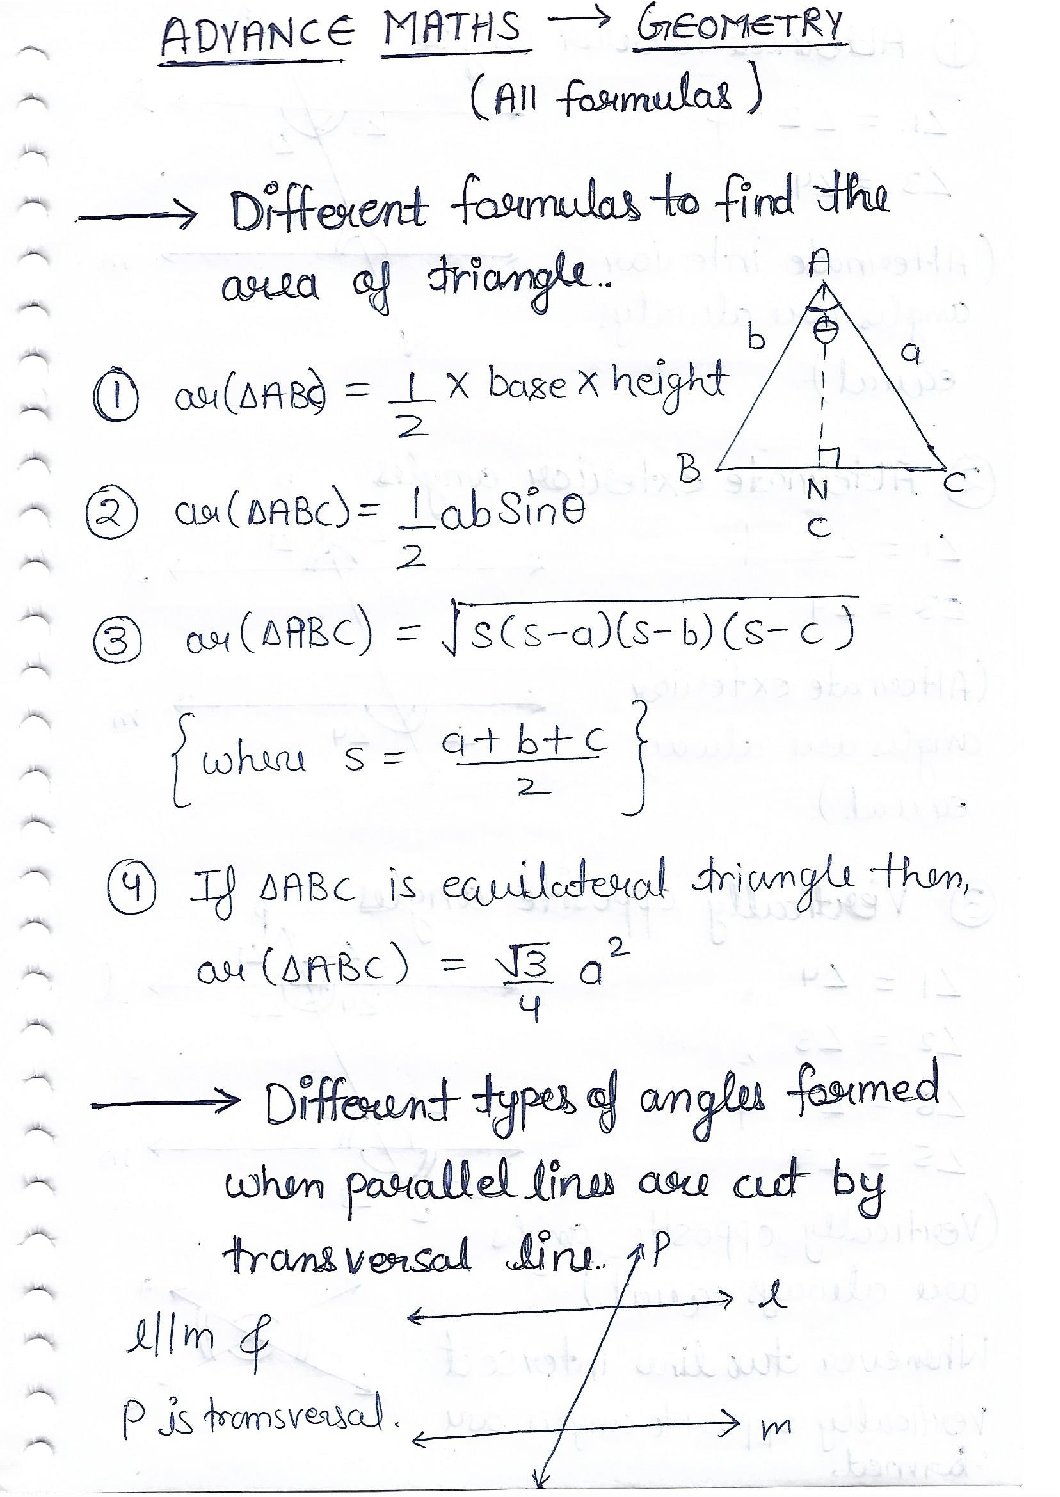 ADVANCE MATHS → GEOMETRY
(All formulas)
→ Different formulas to find the
area of triangle..
A
b
θ
a
① ar(ΔABC) = 1/2 × base × height
B
N
C
C
② ar(ΔABC) = 1/2 ab Sinθ
③ ar(ΔABC) = √s(s-a)(s-b)(s-c)
{where s = a+b+c/2}
④ If ΔABC is equilateral triangle then,
ar(ΔABC) = √3/4 a²
→ Different types of angles formed
when parallel lines are cut by
transversal line.
P
l
l||m &
P is transversal.
m